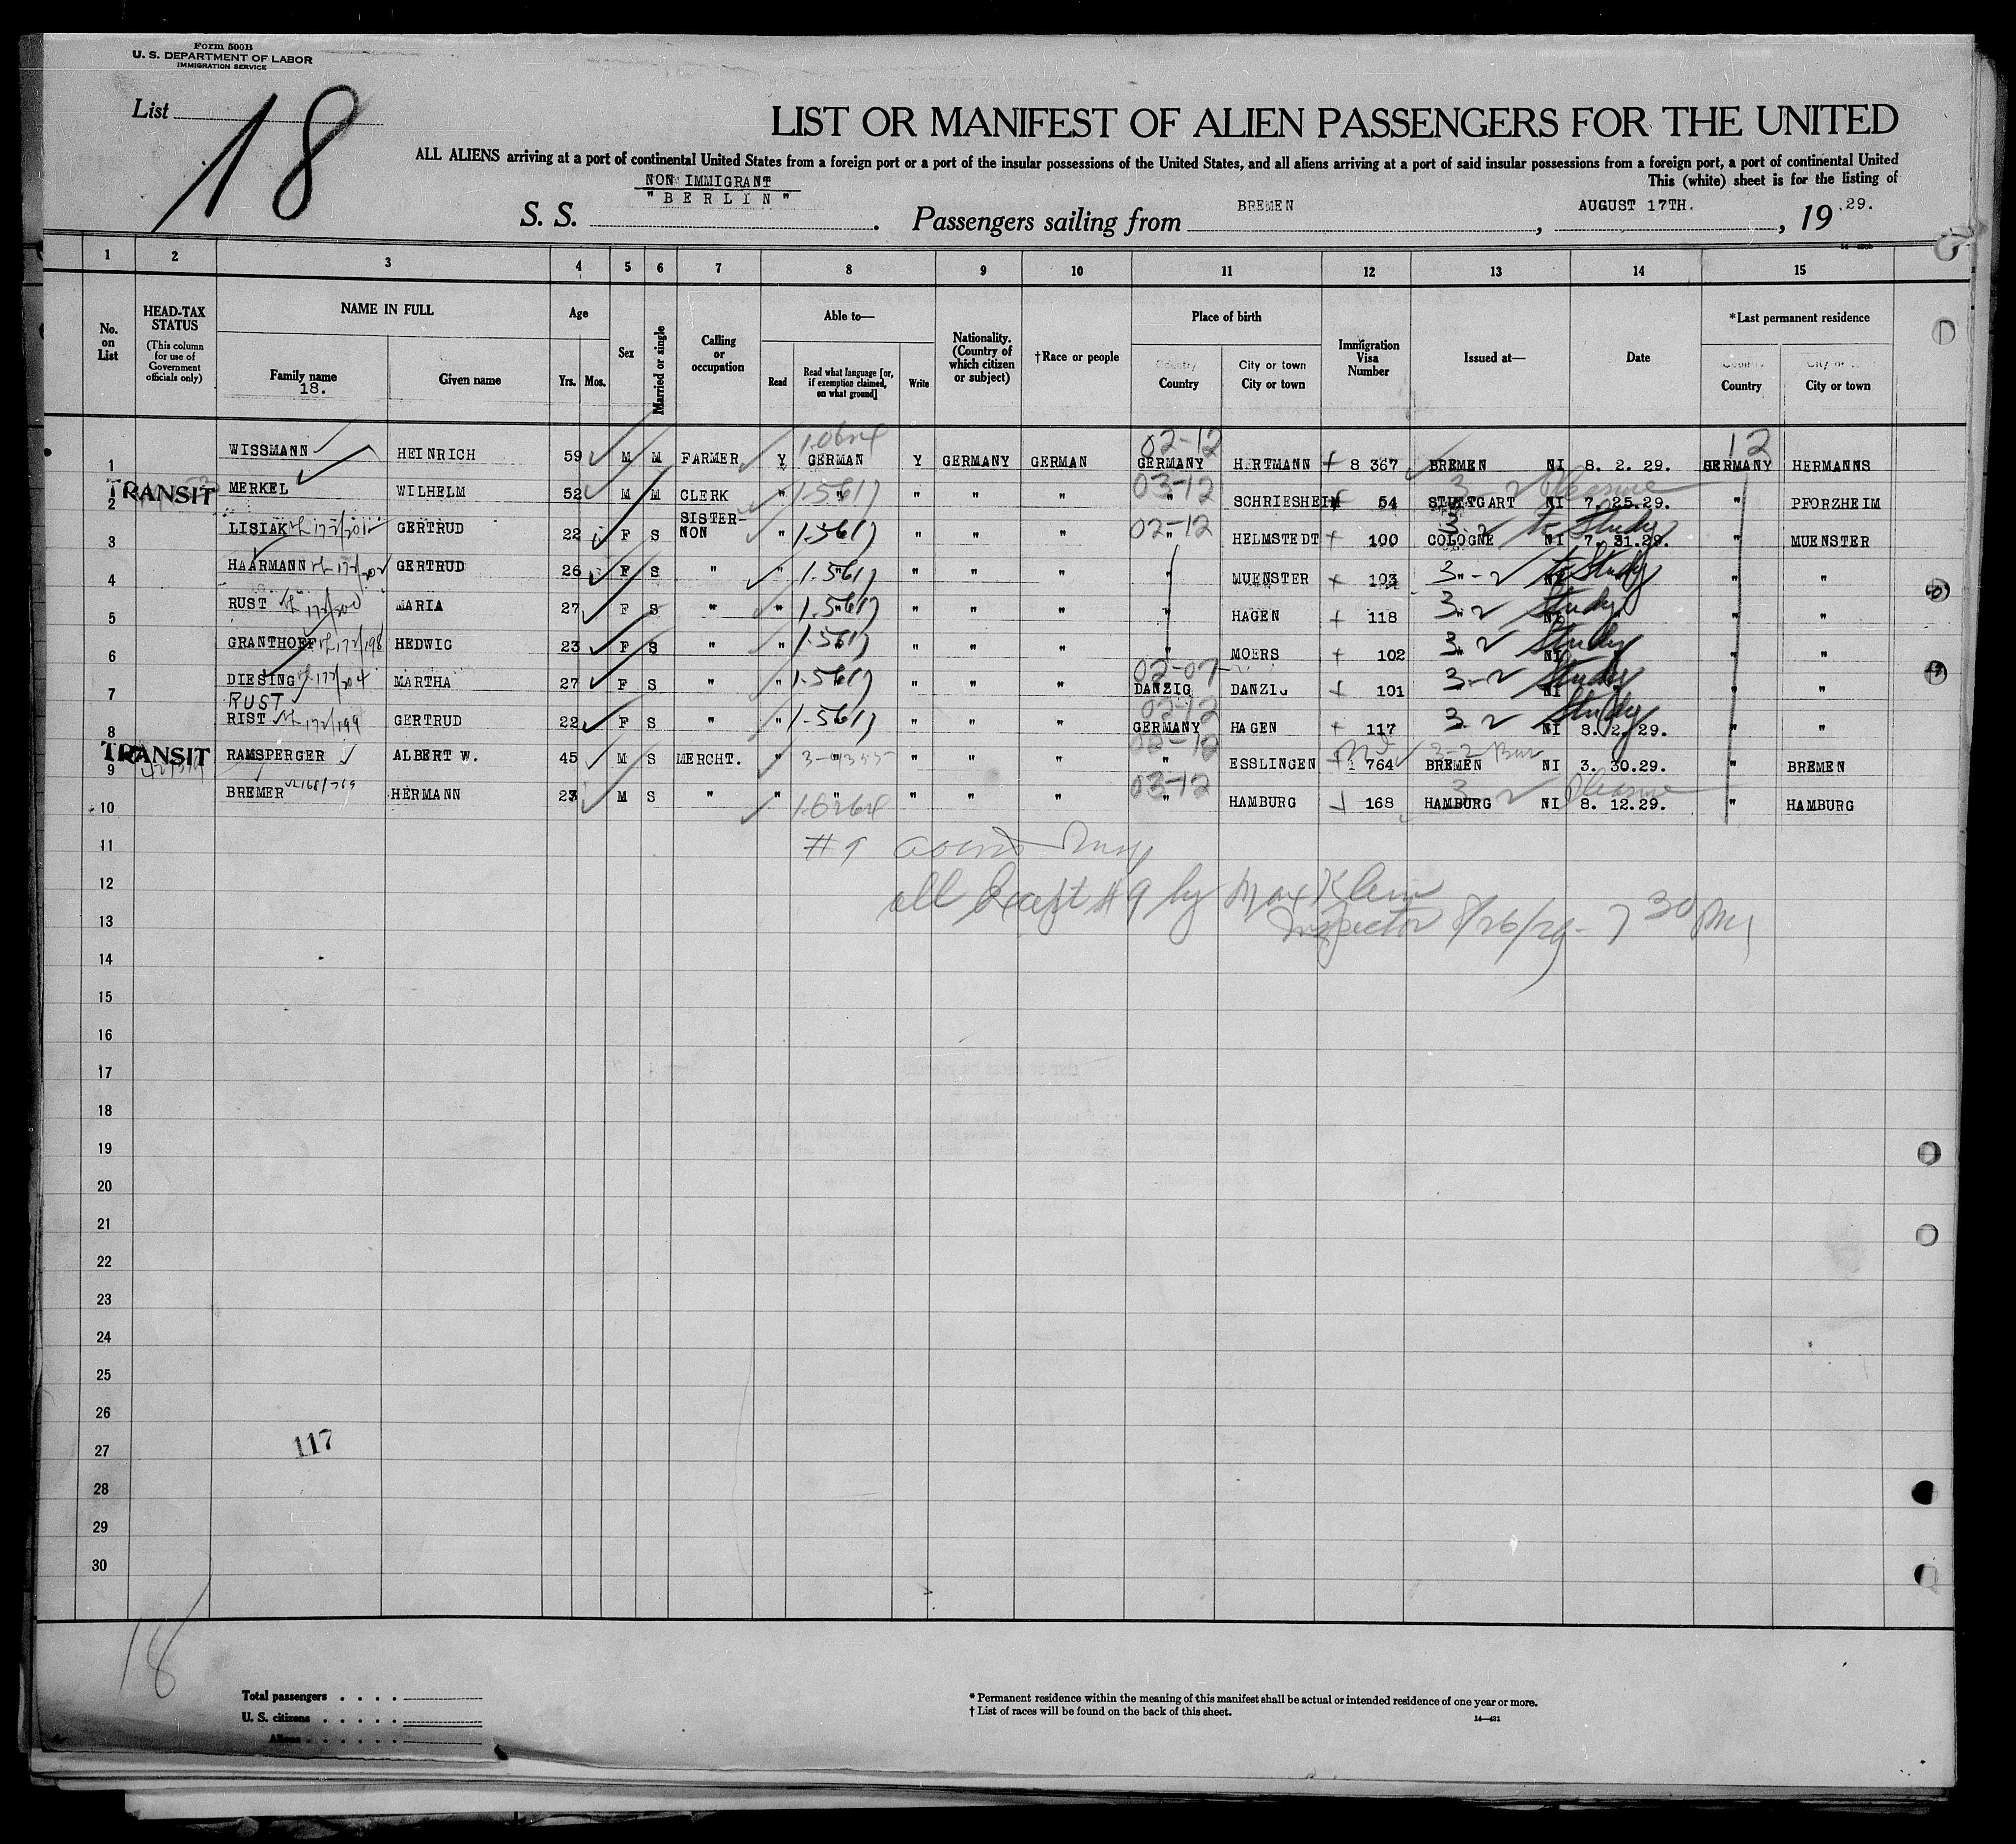 Form 500B
U. S. DEPARTMENT OF LABOR
IMMIGRATION SERVICE
List 18
LIST OR MANIFEST OF ALIEN PASSENGERS FOR THE UNITED
ALL ALIENS arriving at a port of continental United States from a foreign port or a port of the insular possessions of the United States, and all aliens arriving at a port of said insular possessions from a foreign port, a port of continental United
This (white) sheet is for the listing of
NON IMMIGRANT
S. S. "BERLIN". Passengers sailing from BREMEN, AUGUST 17TH., 19 29.
1 2 3 4 5 6 7 8 9 10 11 12 13 14 15
No. on List
HEAD-TAX STATUS
(This column for use of Government officials only)
NAME IN FULL
Family name
18.
Given name
Age
Yrs. Mos.
Sex
Married or single
Calling or occupation
Able to—
Read
Read what language [or, if exemption claimed, on what ground]
Write
Nationality. (Country of which citizen or subject)
†Race or people
Place of birth
Country
Country
City or town
City or town
Immigration Visa Number
Issued at—
Date
*Last permanent residence
Country
Country
City or town
City or town
1 WISSMANN HEINRICH 59 M M FARMER Y GERMAN Y GERMANY GERMAN 02-12 GERMANY HERTMANN 8 367 BREMEN NI 8. 2. 29. 12 GERMANY HERMANNS
TRANSIT 2 MERKEL WILHELM 52 M M CLERK " 1-5617 " " " " 03-12 " SCHRIESHEIM 54 STUTTGART NI 7. 25.29. 3-2 Pleasure " PFORZHEIM
3 LISIAK 172/201 GERTRUD 22 F S SISTER-NON " 1-5617 " " " " 02-12 " HELMSTEDT 100 COLOGNE NI 7. 31.29. 3-2 to Study " MUENSTER
4 HAARMANN 172/202 GERTRUD 26 F S " " 1-5617 " " " " " MUENSTER 103 " 3-2 NI to Study " "
5 RUST 172/200 MARIA 27 F S " " 1-5617 " " " " " HAGEN 118 " 3-2 NI Study " "
6 GRANTHOFF 172/198 HEDWIG 23 F S " " 1-5617 " " " " " MOERS 102 " 3-2 NI Study " "
7 DIESING 172/204 MARTHA 27 F S " " 1-5617 " " " 02-07 DANZIG DANZIG 101 " 3-2 NI Study " "
RUST
8 RIST 172/199 GERTRUD 22 F S " " 1-5617 " " " 02-12 GERMANY HAGEN 117 3-2 NI 8. 2. 29. Study " "
TRANSIT 9 RAMSPERGER ALBERT W. 45 M S MERCHT. " " " " " 02-12 " ESSLINGEN 1 764 BREMEN NI 3. 30.29. 3-2 Bus " BREMEN
10 BREMER 168/769 HERMANN 23 M S " " " " " " 03-12 " HAMBURG 168 HAMBURG NI 8. 12.29. 3-2 Pleasure " HAMBURG
11
12 all Except #9 by Max Klein
13 Inspector 8/26/29- 7 30 PM
14
15
16
17
18
19
20
21
22
23
24
25
26
27 117
28
29
30
18
Total passengers . . . .
U. S. citizens . . . . .
Aliens . . . . . .
* Permanent residence within the meaning of this manifest shall be actual or intended residence of one year or more.
† List of races will be found on the back of this sheet.
14—421